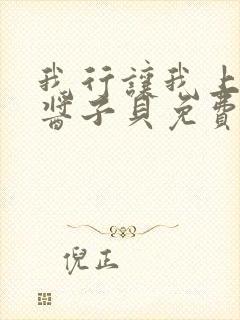 我行讓我上
醬子貝免費
倪正